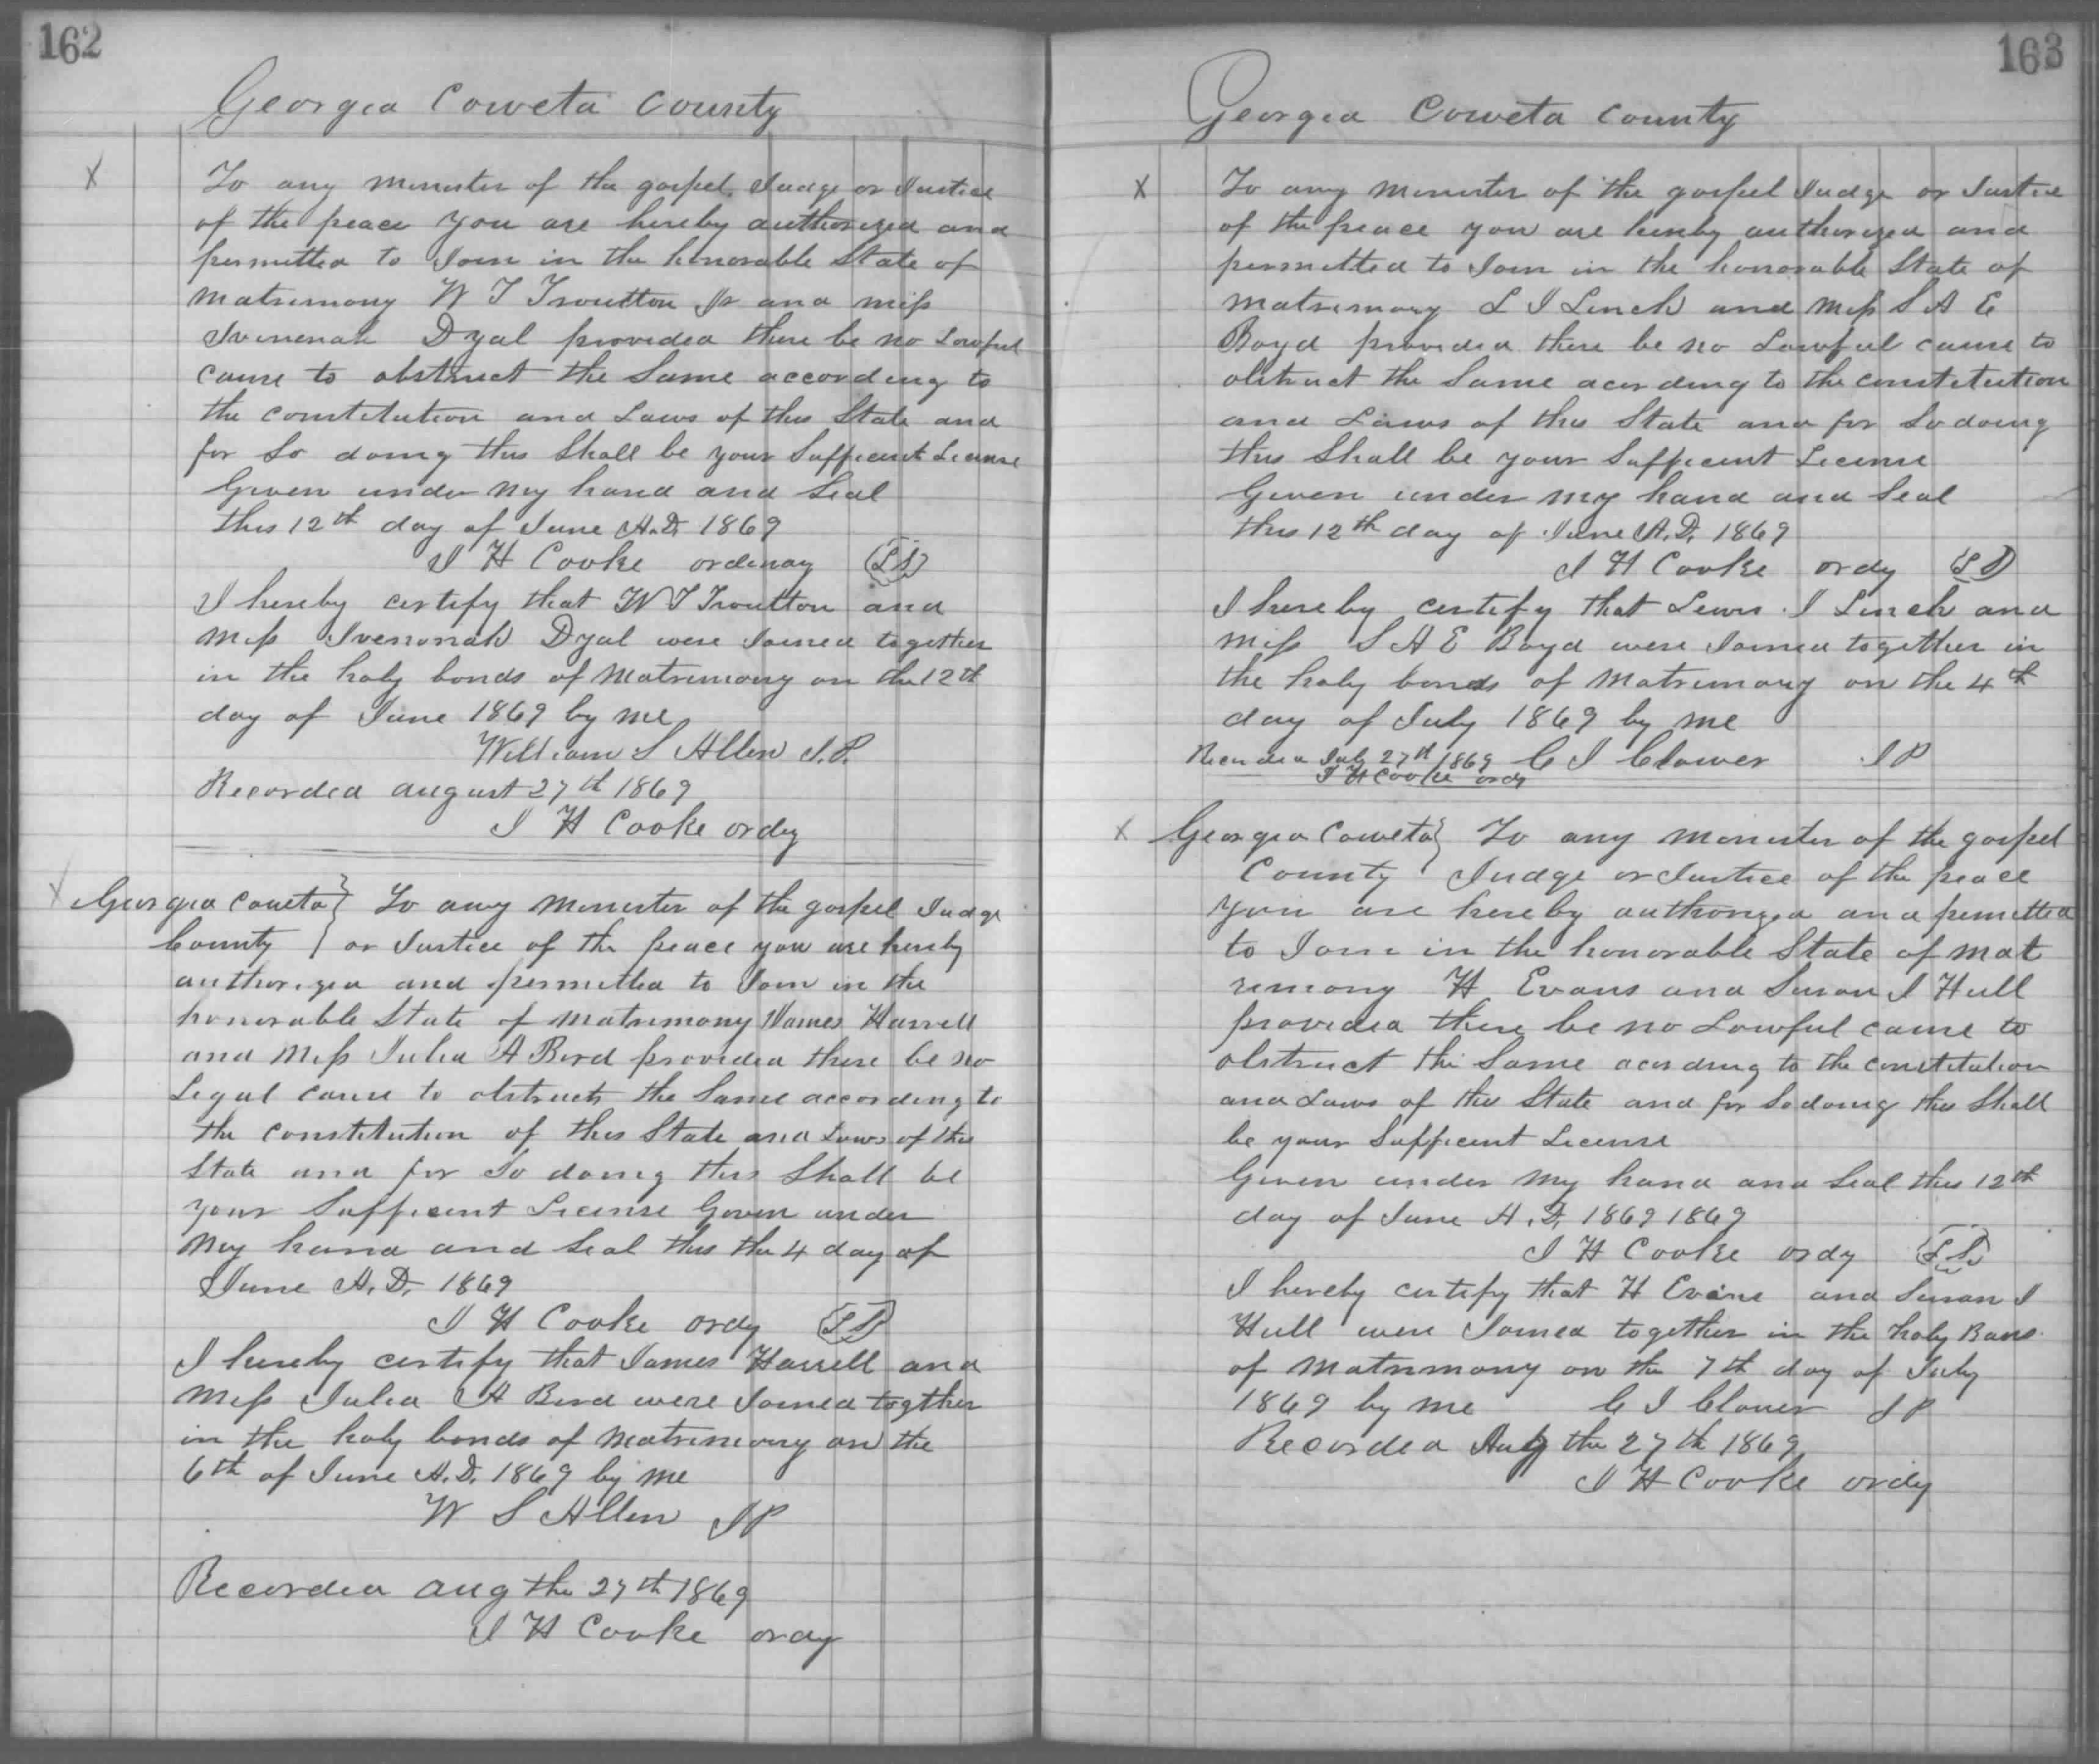 162
Georgia Coweta County
X
To any minister of the gospel Judge or Justice
of the peace you are hereby authorized and
permitted to Join in the honorable State of
matrimony W T Troutton Jr and miss
Ivenonah Dyal provided there be no Lowful
cause to obstruct the Same according to
the constitution and Laws of this State and
for So doing this Shall be your Sufficent License
Given under my hand and Seal
this 12th day of June A.D. 1869
J H Cooke ordinay (LS)
I hereby certify that W T Troutton and
miss Ivenonah Dyal were Joined together
in the holy bonds of Matrimony on the 12th
day of June 1869 by me
William S Allen J.P.
Recorded august 27th 1869
J H Cooke ordy
X Georgia Coweta } To any Minister of the gospel Judge
County } or Justice of the peace you are hereby
authorized and permitted to Join in the
honorable State of matrimony James Harrell
and Miss Julia A Bird provided there be no
Legal cause to obstruct the Same according to
the constitution of this State and Laws of this
State and for So doing this Shall be
your Sufficent License Given under
my hand and Seal this the 4 day of
June A.D. 1869
J H Cooke ordy (LS)
I hereby certify that James Harrell and
Miss Julia A Bird were Joined togther
in the holy bonds of Matrimony on the
6th of June A.D. 1869 by me
W S Allen JP
Recorded aug the 27th 1869
J H Cooke ordy
163
Georgia Coweta County
X
To any Minister of the gospel Judge or Justice
of the peace you are hereby authorized and
permitted to Join in the honorable State of
Matrimony L J Linch and Miss S A E
Boyd provided there be no Lawful cause to
obstruct the Same acording to the constitution
and Laws of this State and for So doing
this Shall be your Sufficent License
Given under my hand and Seal
this 12th day of June A.D. 1869
J H Cooke ordy (LS)
I hereby certify that Lewis J Linch and
Miss S A E Boyd were Joined together in
the holy bonds of Matrimony on the 4th
day of July 1869 by me
Recorded July 27th 1869 C J Clower JP
J H Cooke ordy
X Georgia Coweta } To any Minister of the gospel
County } Judge or Justice of the peace
you are hereby authorized and permitted
to Join in the honorable State of mat
rimony H Evans and Susan J Hull
provided there be no Lowful cause to
obstruct the Same acording to the constitution
and Laws of this State and for So doing this Shall
be your Sufficent License
Given under my hand and Seal this 12th
day of June A.D. 1869 1869
J H Cooke ordy (LS)
I hereby certify that H Evans and Susan J
Hull were Joined together in the holy Bans
of Matrimony on the 7th day of July
1869 by me C J Clower JP
Recorded Aug the 27th 1869
J H Cooke ordy